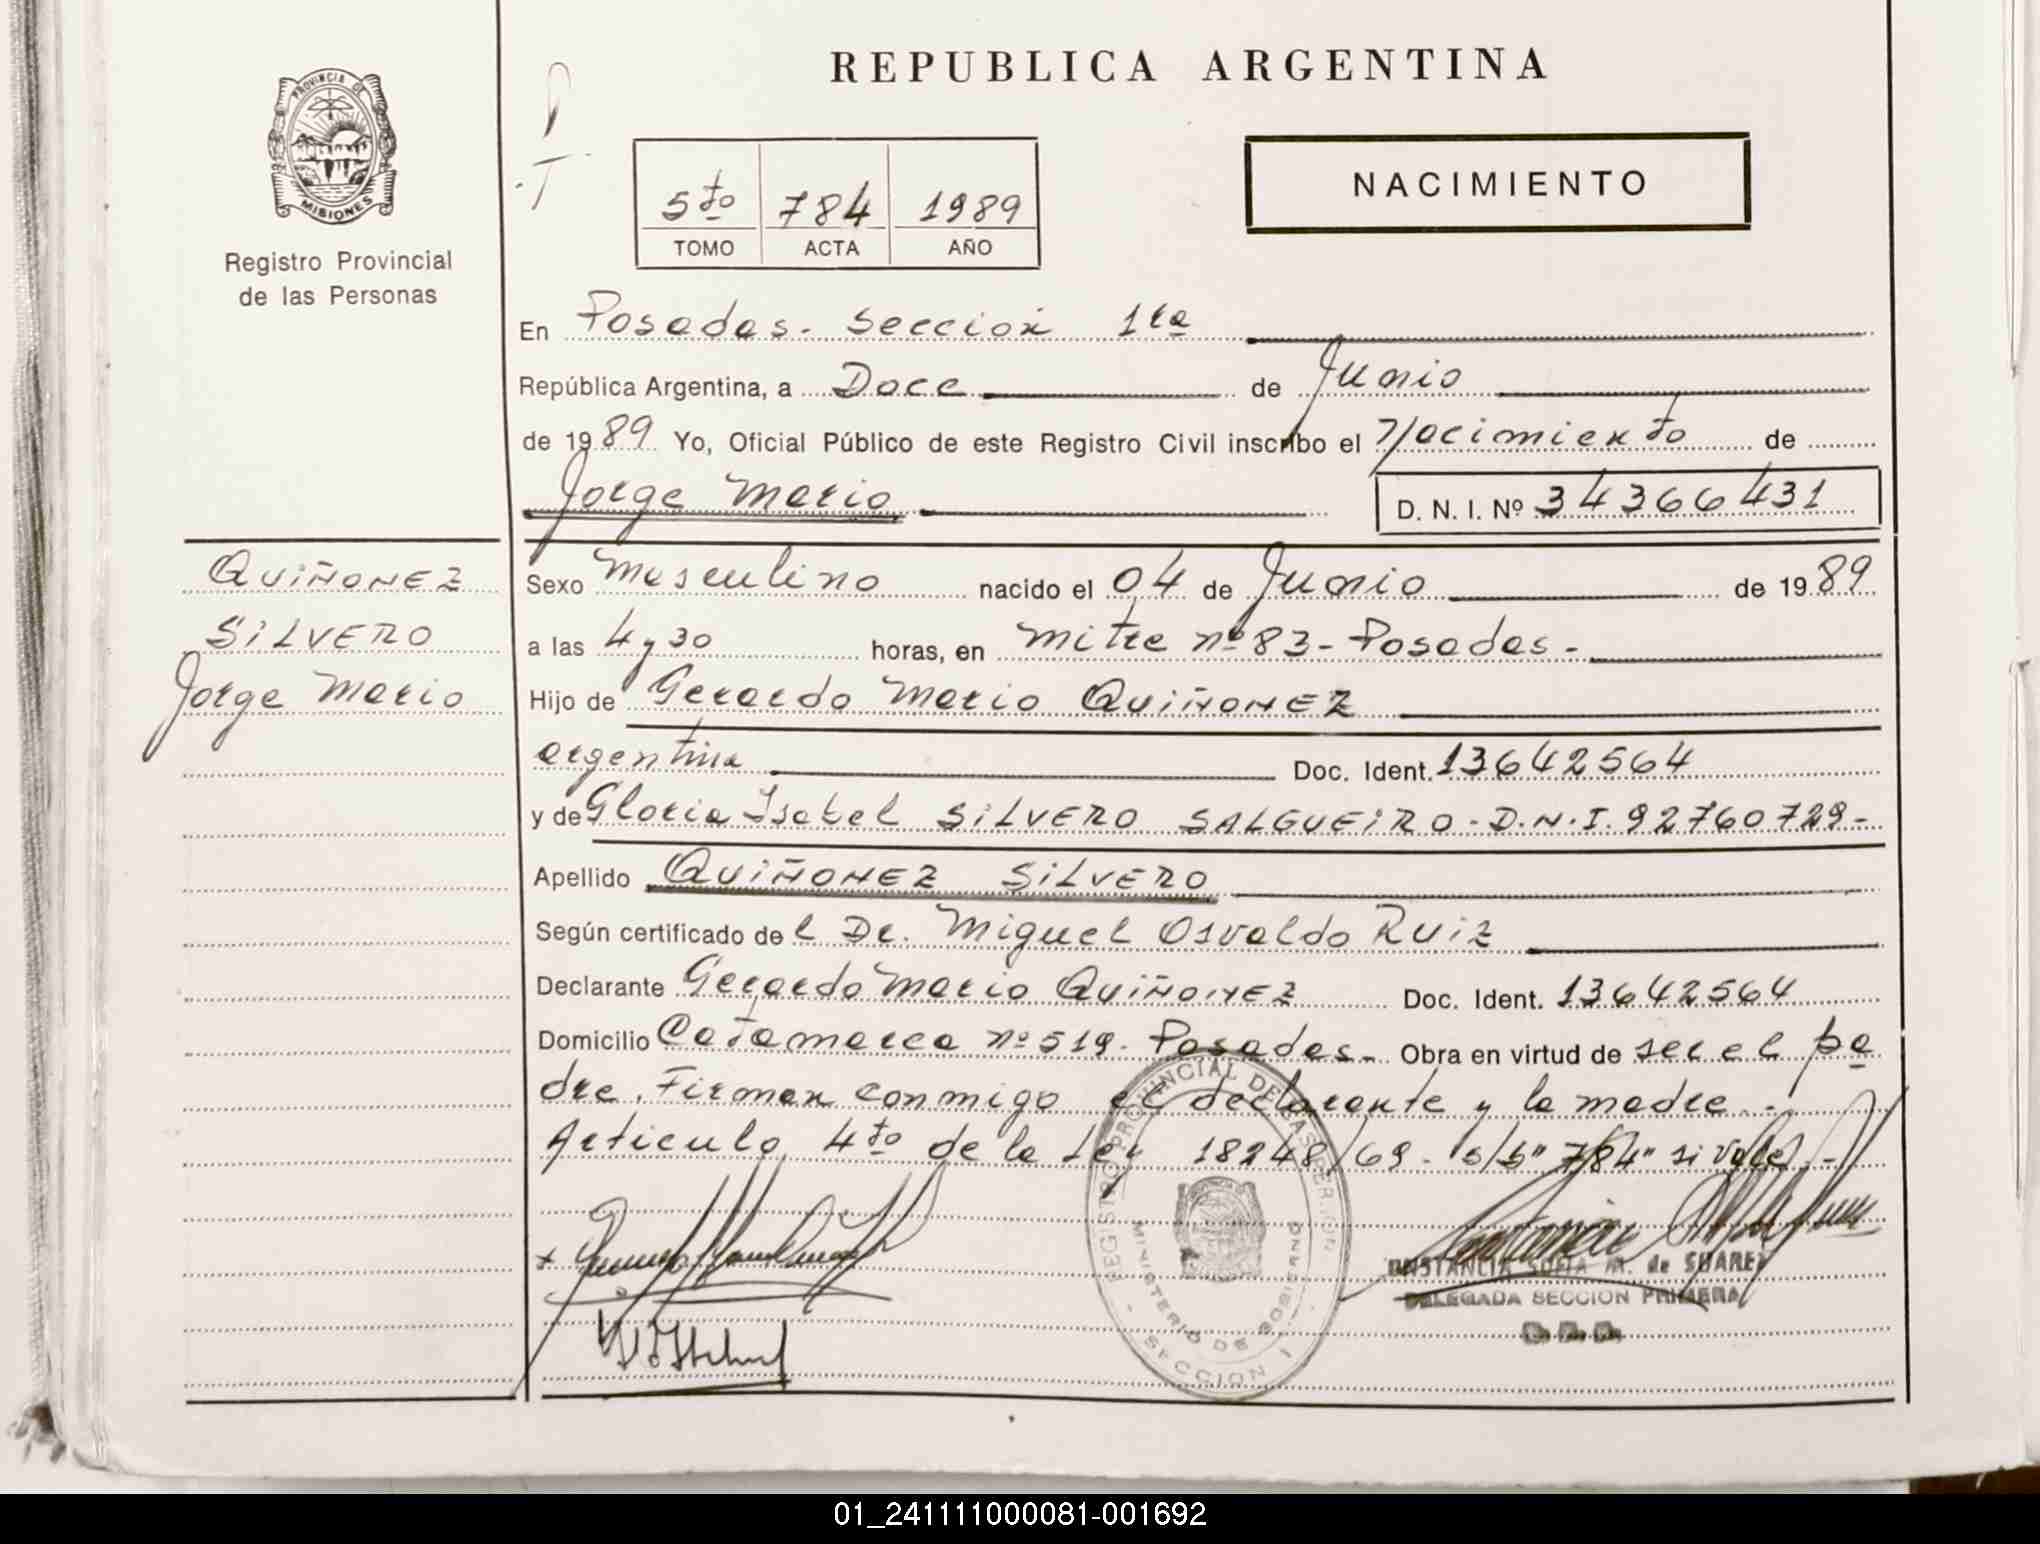 REPUBLICA ARGENTINA
PROVINCIA DE
MISIONES
Registro Provincial
de las Personas
5to 784 1989
TOMO ACTA AÑO
NACIMIENTO
En Posadas - Sección 1ra
República Argentina, a Doce de Junio
de 1989 Yo, Oficial Público de este Registro Civil inscribo el Nacimiento de
Jorge Mario D. N. I. Nº 34366431
QUIÑONEZ
SILVERO
Jorge Mario
Sexo Masculino nacido el 04 de Junio de 1989
a las 4 y 30 horas, en Mitre nº 83 - Posadas -
Hijo de Gerardo Mario QUIÑONEZ
argentina Doc. Ident. 13642564
y de Gloria Isabel SILVERO SALGUEIRO - D.N.I. 92760729 -
Apellido QUIÑONEZ SILVERO
Según certificado del Dr. Miguel Osvaldo Ruiz
Declarante Gerardo Mario QUIÑONEZ Doc. Ident. 13642564
Domicilio Catamarca nº 519 - Posadas - Obra en virtud de ser el pa
dre. Firman conmigo el declarante y la madre. -
Articulo 4to de la Ley 18248/69 - s/b "784" si vale. -
REGISTRO PROVINCIAL DE LAS PERSONAS
MINISTERIO DE GOBIERNO
- SECCION I -
CONSTANCIA SOFIA M. de SUAREZ
DELEGADA SECCION PRIMERA
01_241111000081-001692